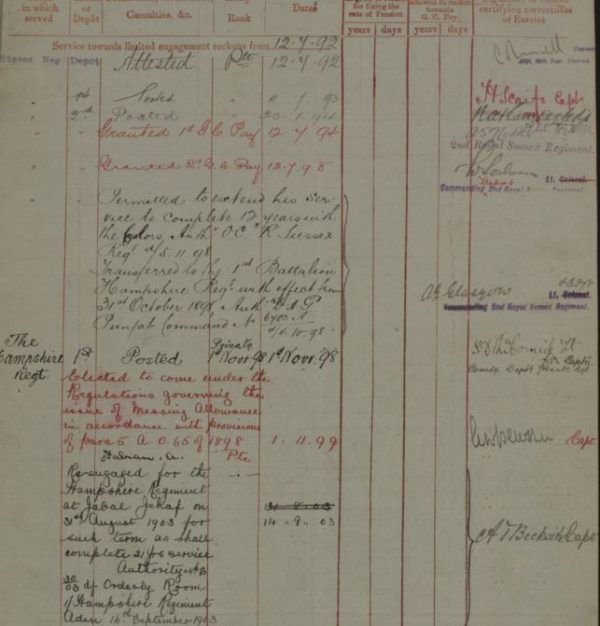 in which served
or Depôt
Casualties, &c.
Rank
Dates
for fixing the rate of Pension
towards G. C. Pay
certifying correctness of Entries
years days
years days
Service towards limited engagement reckons from 12-7-92
Sussex Reg Depôt Attested Pte 12-7-92
1st Posted " 11 7 93
2nd Posted " 20-1-94
H Scaife Capt
Granted 1st G C Pay 12 7 94
2nd Royal Sussex Regiment.
Granted 2nd G. C. Pay 12-7-98
Lt. Colonel.
Commanding 2nd Royal Sussex Regiment.
Permitted to extend his ser-
vice to complete 12 years with
the Colors Auth: O.C. 2 R. Sussex
Regt d/5. 11 98
Transferred to the 1st Battalion
Hampshire Regt with effect from
31st October 1898, Auth:
Punjab Command No 6480 A
d/ 10-98
Glasgow
Lt. Colonel.
Commanding 2nd Royal Sussex Regiment.
The Hampshire Regt
1st Posted Private 1st Nov: 98 1st Nov: 98
Elected to come under the
Regulations governing the
issue of Messing Allowance
in accordance with provisions
of para 5 A. O. 65 of 1898 1. 11. 99
Capt
Pte
Re-engaged for the
Hampshire Regiment
at Jabal Jehaf on 31-8-03
3rd August 1903 for 14-9-03
such term as shall
complete 21 yrs service
A T Beckwith Capt
Authority
d/ Orderly Room
1/Hampshire Regiment
Aden 14th September 1903